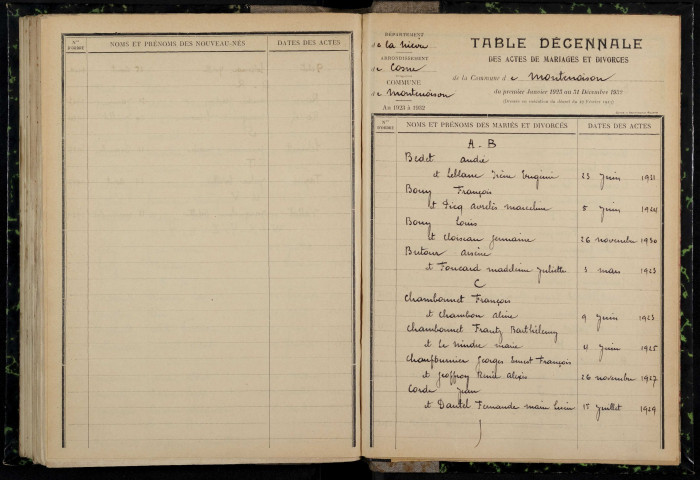 Nos D'ORDRE
NOMS ET PRÉNOMS DES NOUVEAU-NÉS
DATES DES ACTES
DÉPARTEMENT
de la Nièvre
ARRONDISSEMENT
de Cosne
COMMUNE
de Montenoison
An 1923 à 1932
TABLE DÉCENNALE
DES ACTES DE MARIAGES ET DIVORCES
de la Commune de Montenoison
du premier Janvier 1923 au 31 Décembre 1932
Nos D'ORDRE
NOMS ET PRÉNOMS DES MARIÉS ET DIVORCÉS
DATES DES ACTES
A - B
Bedet André
et Leblanc Irène Virginie 23 Juin 1931
Bony François
et Picq Marceline 5 Juin 1924
Bony Louis
et Cloiseau Germaine 26 novembre 1930
Butour Arsène
et Foucard Madeleine Juliette 3 mars 1923
C
Chambonnet François
et Chambon Aline 9 Juin 1923
Chambonnet Frantz Barthélemy
et Le Nindre Marie Juin 1925
Chauffournier Georges Ernest François
et Geoffroy Renée Alexis 26 novembre 1927
Corde Jean
et Dautel Fernande Marie 1er Juillet 1929